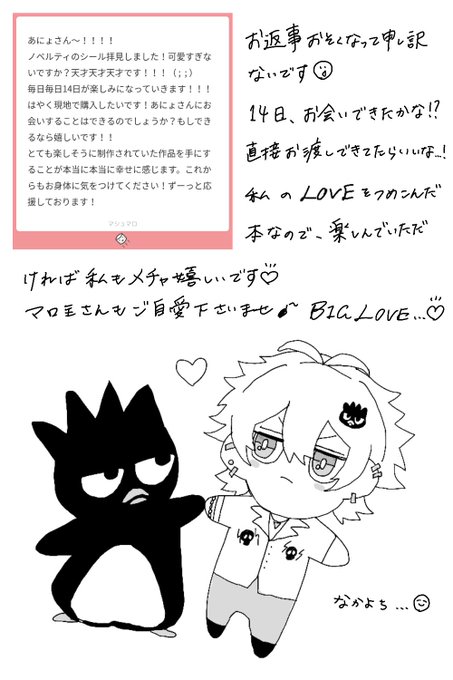 あにょさん〜！！！！
ノベルティのシール拝見しました！可愛すぎな
いですか？天才天才天才です！！！（；；）
毎日毎日14日が楽しみになっていきます！！！
はやく現地で購入したいです！あにょさんにお
会いすることはできるのでしょうか？もしでき
るなら嬉しいです！！
とても楽しそうに制作されていた作品を手にす
ることが本当に本当に幸せに感じます。これか
らもお身体に気をつけてください！ずーっと応
援しております！
マシュマロ
お返事おそくなって申し訳
ないです
14日、お会いできたかな!?
直接お渡しできてたらいいな…!
私のLOVEをつめこんだ
本なので、楽しんでいただ
ければ私もメチャ嬉しいです♡
マロ主さんもご自愛下さいませ BIG LOVE…♡
なかよち…